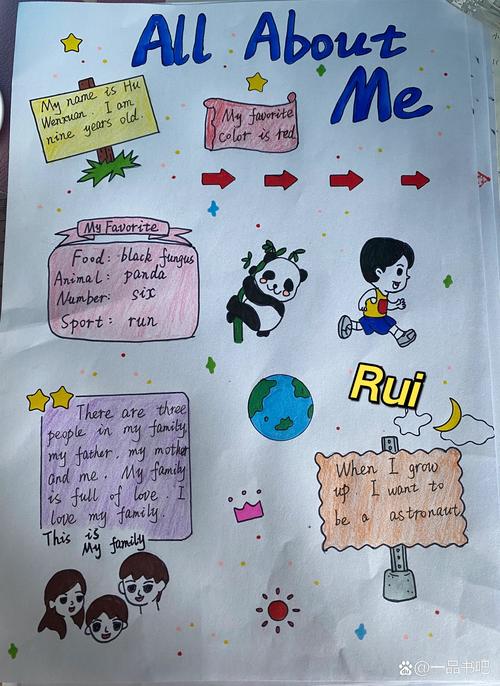 All About
Me
My name is Hu
Wenxuan. I am
nine years old.
My favorite
color is red
My Favorite
Food: black fungus
Animal: panda
Number: six
Sport: run
Rui
There are three
people in my family,
my father, my mother
and me. My family
is full of love. I
love my family.
This is
My family
When I grow
up, I want to
be a astronaut
@一品书吧